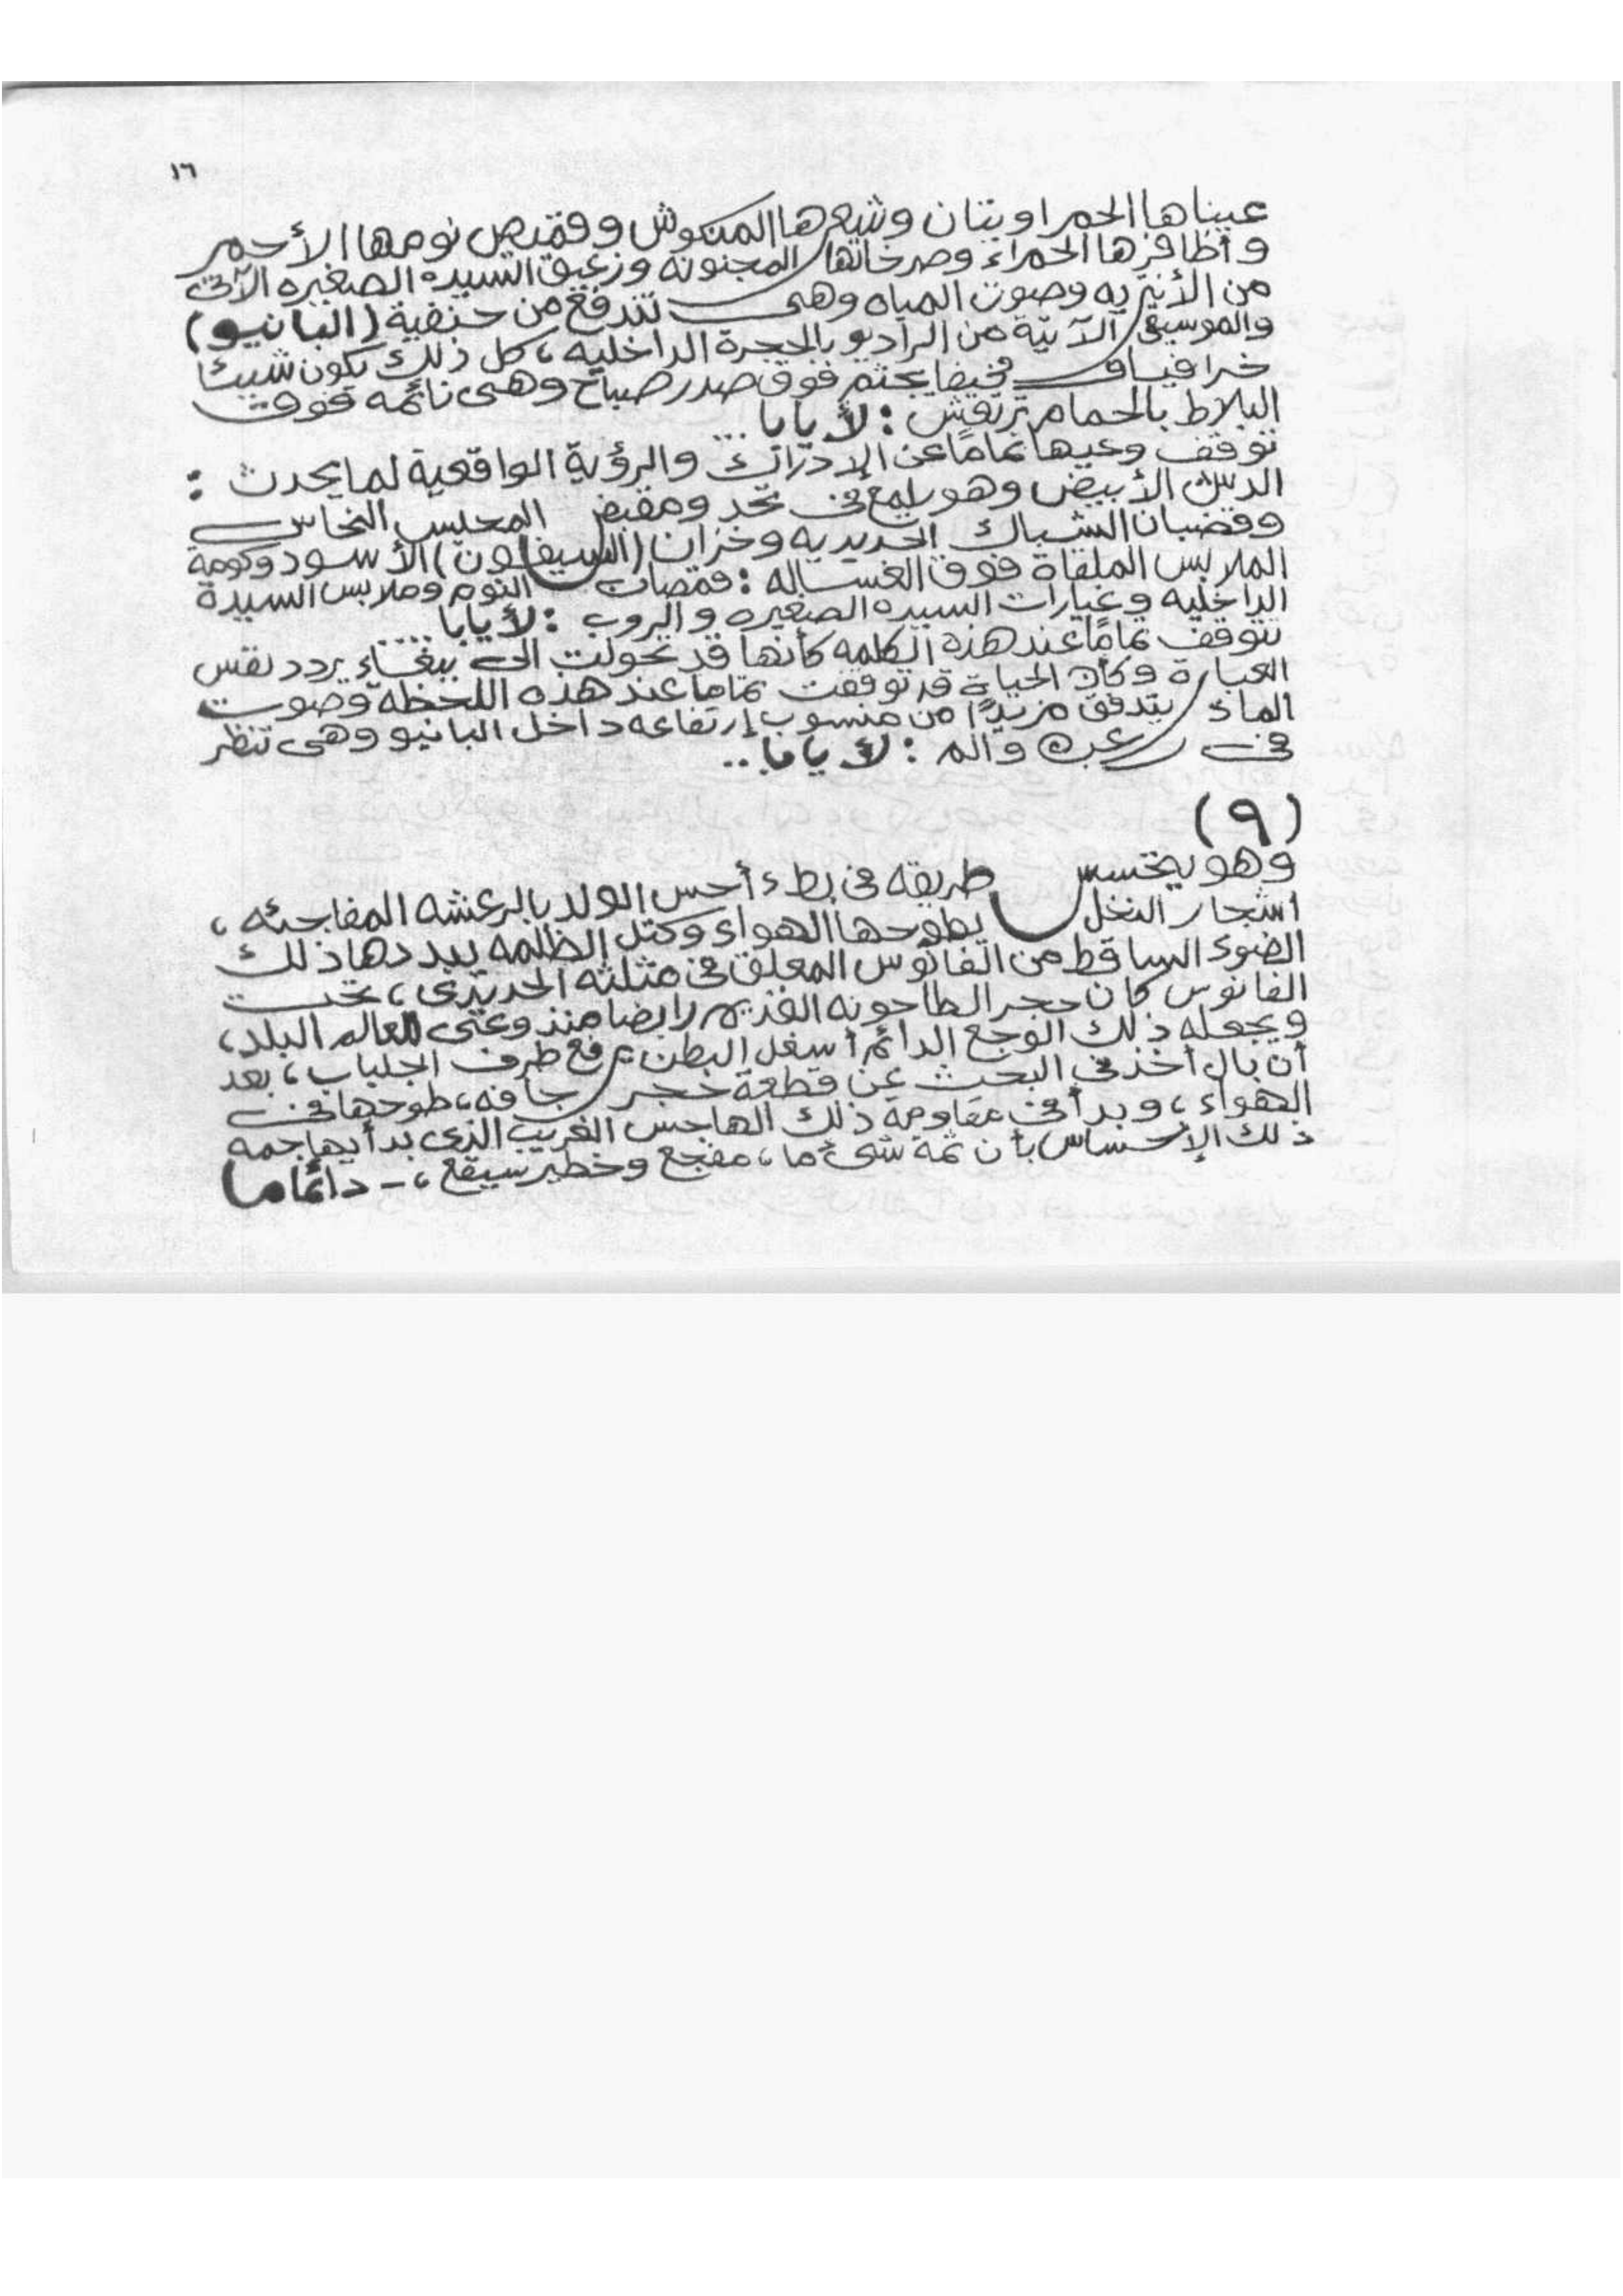 ١٦
عيناها الحمراويتان وشعرها المنكوش وقميص نومها الأحمر
وأظافرها الحمراء وصرخاتها المجنونه وزعيق السيده الصغيره الآتى
من الأنتريه وصوت المياه وهى تتدفع من حنفية (البانيو)
والموسيقى الآتية من الراديو بالحجرة الداخليه، كل ذلك يكون شيئا
خرافيا مخيفا يجثم فوق صدر صباح وهى نائمه فوق
البلاط بالحمام ترتعش : لأ يا بابا ...
توقف وعيها تمامًا عن الإدراك والرؤية الواقعية لما يحدث :
الدش الأبيض وهو يلمع فى تحد ومقبض المحبس النحاس
وقضبان الشباك الحديديه وخزان (السيفون) الأسود وكومة
الملابس الملقاة فوق الغساله : قمصان النوم وملابس السيدة
الداخليه وغيارات السيده الصغيره والروب : لأ يا بابا ....
تتوقف تمامًا عند هذه الكلمه كأنها قد تحولت الى ببغاء يردد نفس
العبارة وكأن الحياة قد توقفت تماما عند هذه اللحظة وصوت
الماء يتدفق مزيدًا من منسوب إرتفاعه داخل البانيو وهى تنظر
فى رعب وألم : لأ يا بابا ..
(٩)
وهو يتحسس طريقه فى بطء أحس الولد بالرعشه المفاجئه ،
اشجار النخل يطوحها الهواء وكتل الظلمه يبددها ذلك
الضوء الساقط من الفانوس المعلق فى مثلثه الحديدى ، تحت
الفانوس كان حجر الطاحونه القديم رابضا منذ وعى العالم البلد ،
ويجعله ذلك الوجع الدائم أسفل البطن يرفع طرف الجلباب ، بعد
أن بال أخذ فى البحث عن قطعة حجر جافه ، طوحها فى
الهواء ، وبدأ فى مقاومة ذلك الهاجس الغريب الذى بدأ يهاجمه
ذلك الإحساس بأن ثمة شىء ما ، مفجع وخطير سيقع ، - دائما ما